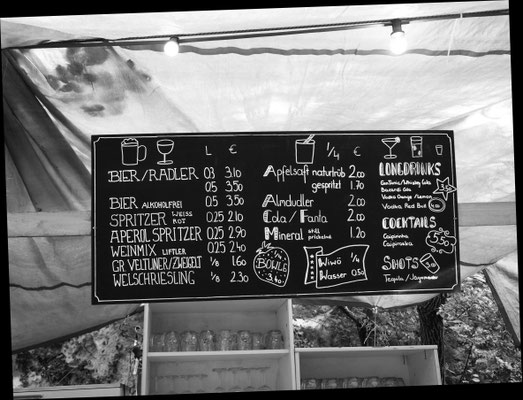 L €
BIER/RADLER 0.3 3.10
0.5 3.50
BIER ALKOHOLFREI 0.5 3.50
SPRITZER WEISS ROT 0.25 2.10
APEROL SPRITZER 0.25 2.90
WEINMIX LIFTLER 0.25 2.40
GR. VELTLINER/ZWEIGELT 1/8 1.60
WELSCHRIESLING 1/8 2.30
1/4 €
Apfelsaft naturtrüb 2.00
gespritzt 1.70
Almdudler 2.00
Cola / Fanta 2.00
Mineral still prickelnd 1.20
BOWLE
3.40
Wiwö 1/4
Wasser 0.50
LONGDRINKS
Gin Tonic/Whiskey Cola
Bacardi Cola
Vodka Orange/Lemon
Vodka Red Bull
COCKTAILS
Caipirinha
Caipiroska
5.50
SHOTS
Tequila/